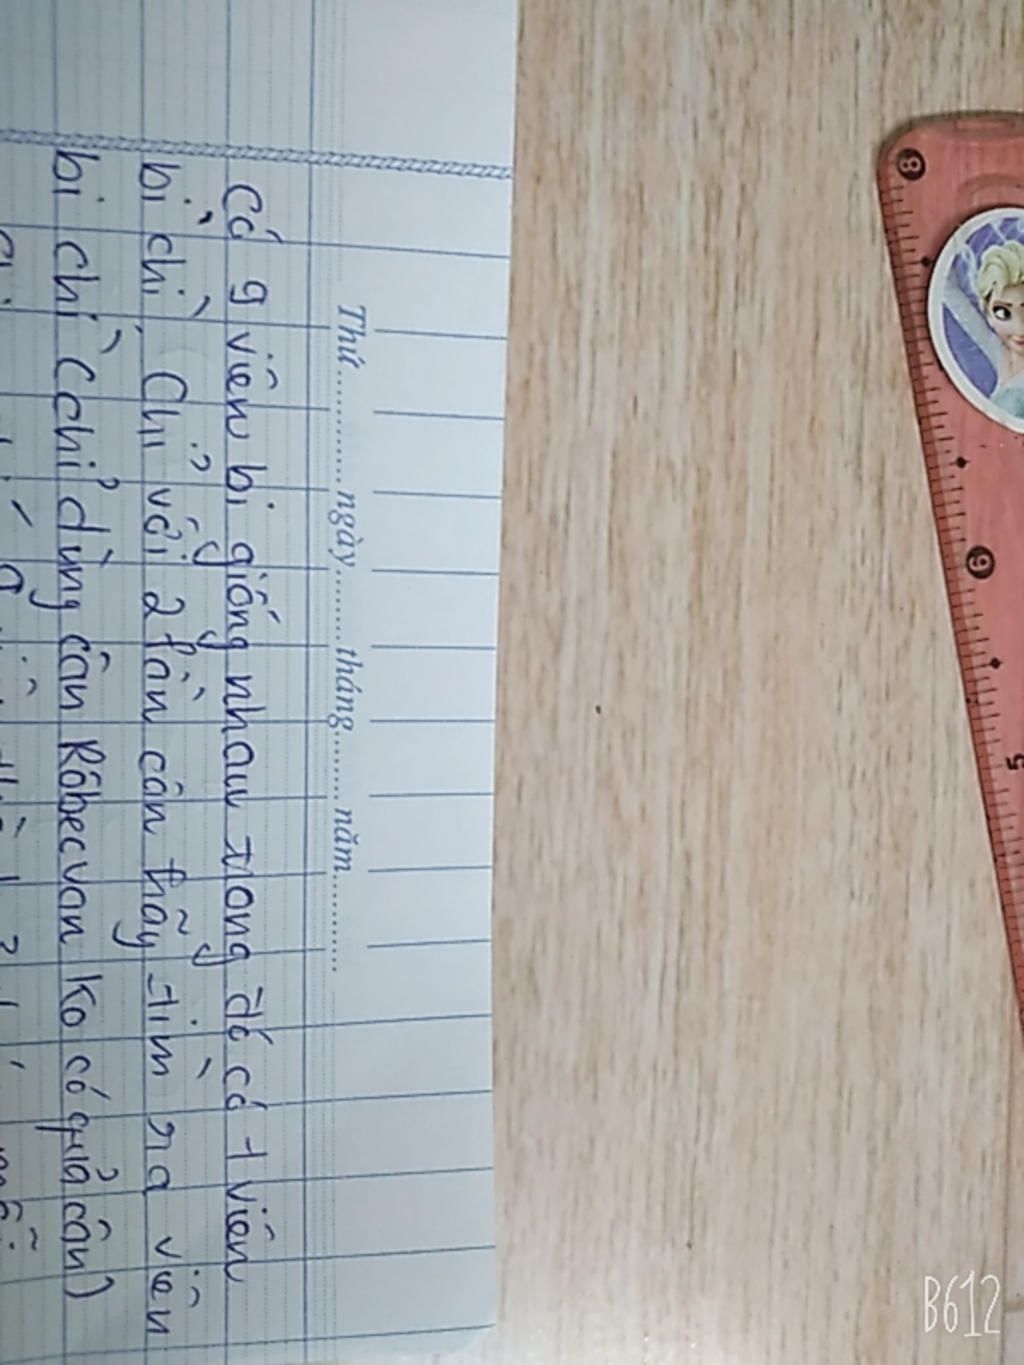 Thứ ............ ngày ........ tháng ........ năm ............
Có 9 viên bi giống nhau trong đó có 1 viên
bi chì. Chỉ với 2 lần cân hãy tìm ra viên
bi chì (chỉ dùng cân Rôbecvan ko có quả cân)
8
6
5
B612